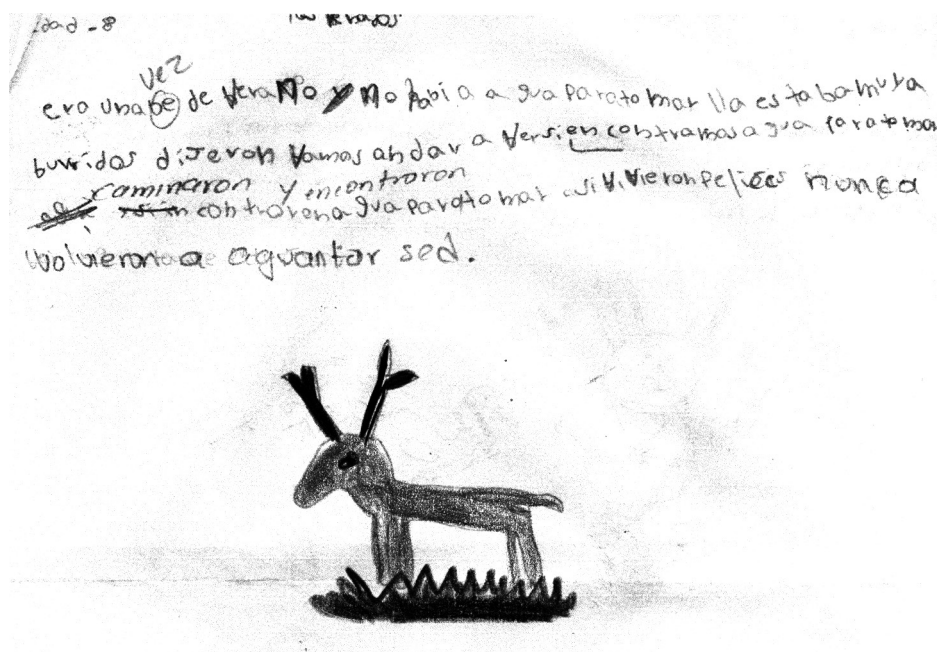 edad - 8 los venados
vez
era una be de veraNo y No habia a gua para to mar lla es ta ba mu ra
burridos dijeron Vamos an dar a ver si en con tramos a gua para to mar
caminaron y encontraron
en con traron a gua para to mar asi vi vieron felices nunca
volvieron a aguantar sed.